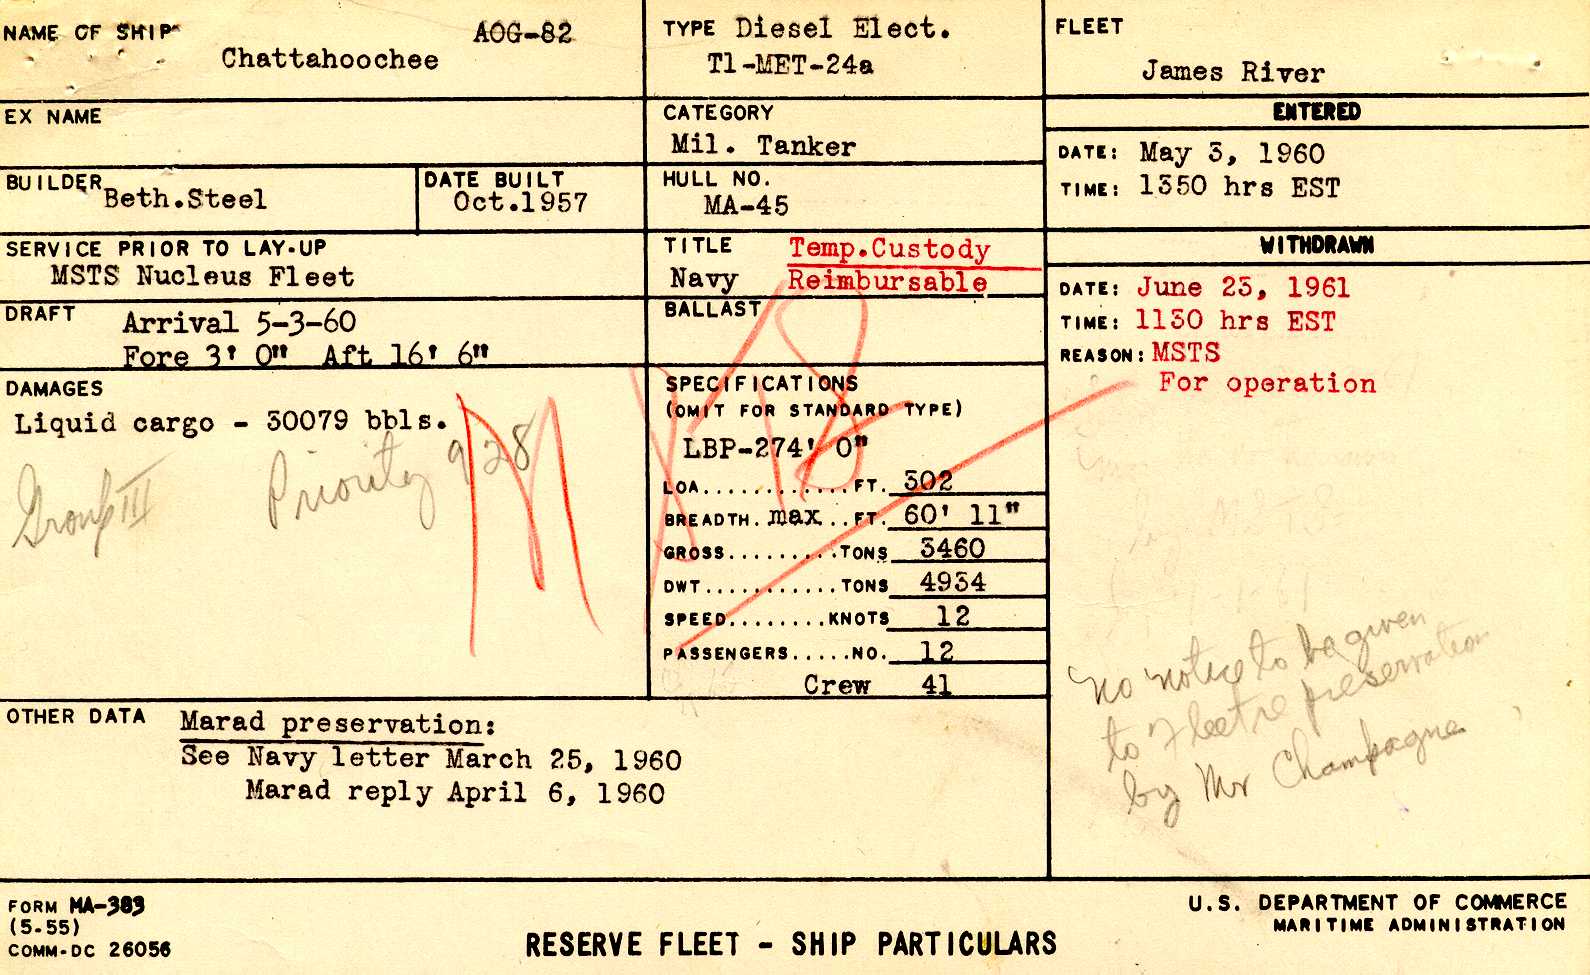 NAME OF SHIP AOG-82
Chattahoochee
TYPE Diesel Elect.
T1-MET-24a
FLEET
James River
EX NAME
CATEGORY
Mil. Tanker
ENTERED
DATE: May 3, 1960
TIME: 1350 hrs EST
BUILDER
Beth.Steel
DATE BUILT
Oct.1957
HULL NO.
MA-45
SERVICE PRIOR TO LAY-UP
MSTS Nucleus Fleet
TITLE Temp.Custody
Navy Reimbursable
WITHDRAWN
DATE: June 23, 1961
TIME: 1130 hrs EST
REASON: MSTS
For operation
DRAFT Arrival 5-3-60
Fore 3' 0" Aft 16' 6"
BALLAST
DAMAGES
Liquid cargo - 30079 bbls.
Group III Priority 928
SPECIFICATIONS
(OMIT FOR STANDARD TYPE)
LBP-274' 0"
LOA............FT. 302
BREADTH. max...FT. 60' 11"
GROSS..........TONS 3460
DWT............TONS 4934
SPEED........KNOTS 12
PASSENGERS.....NO. 12
Crew 41
No notice to be given
to Fleet re preservation
by Mr Champagne
OTHER DATA Marad preservation:
See Navy letter March 25, 1960
Marad reply April 6, 1960
FORM MA-383
(5-55)
COMM-DC 26056
RESERVE FLEET - SHIP PARTICULARS
U.S. DEPARTMENT OF COMMERCE
MARITIME ADMINISTRATION